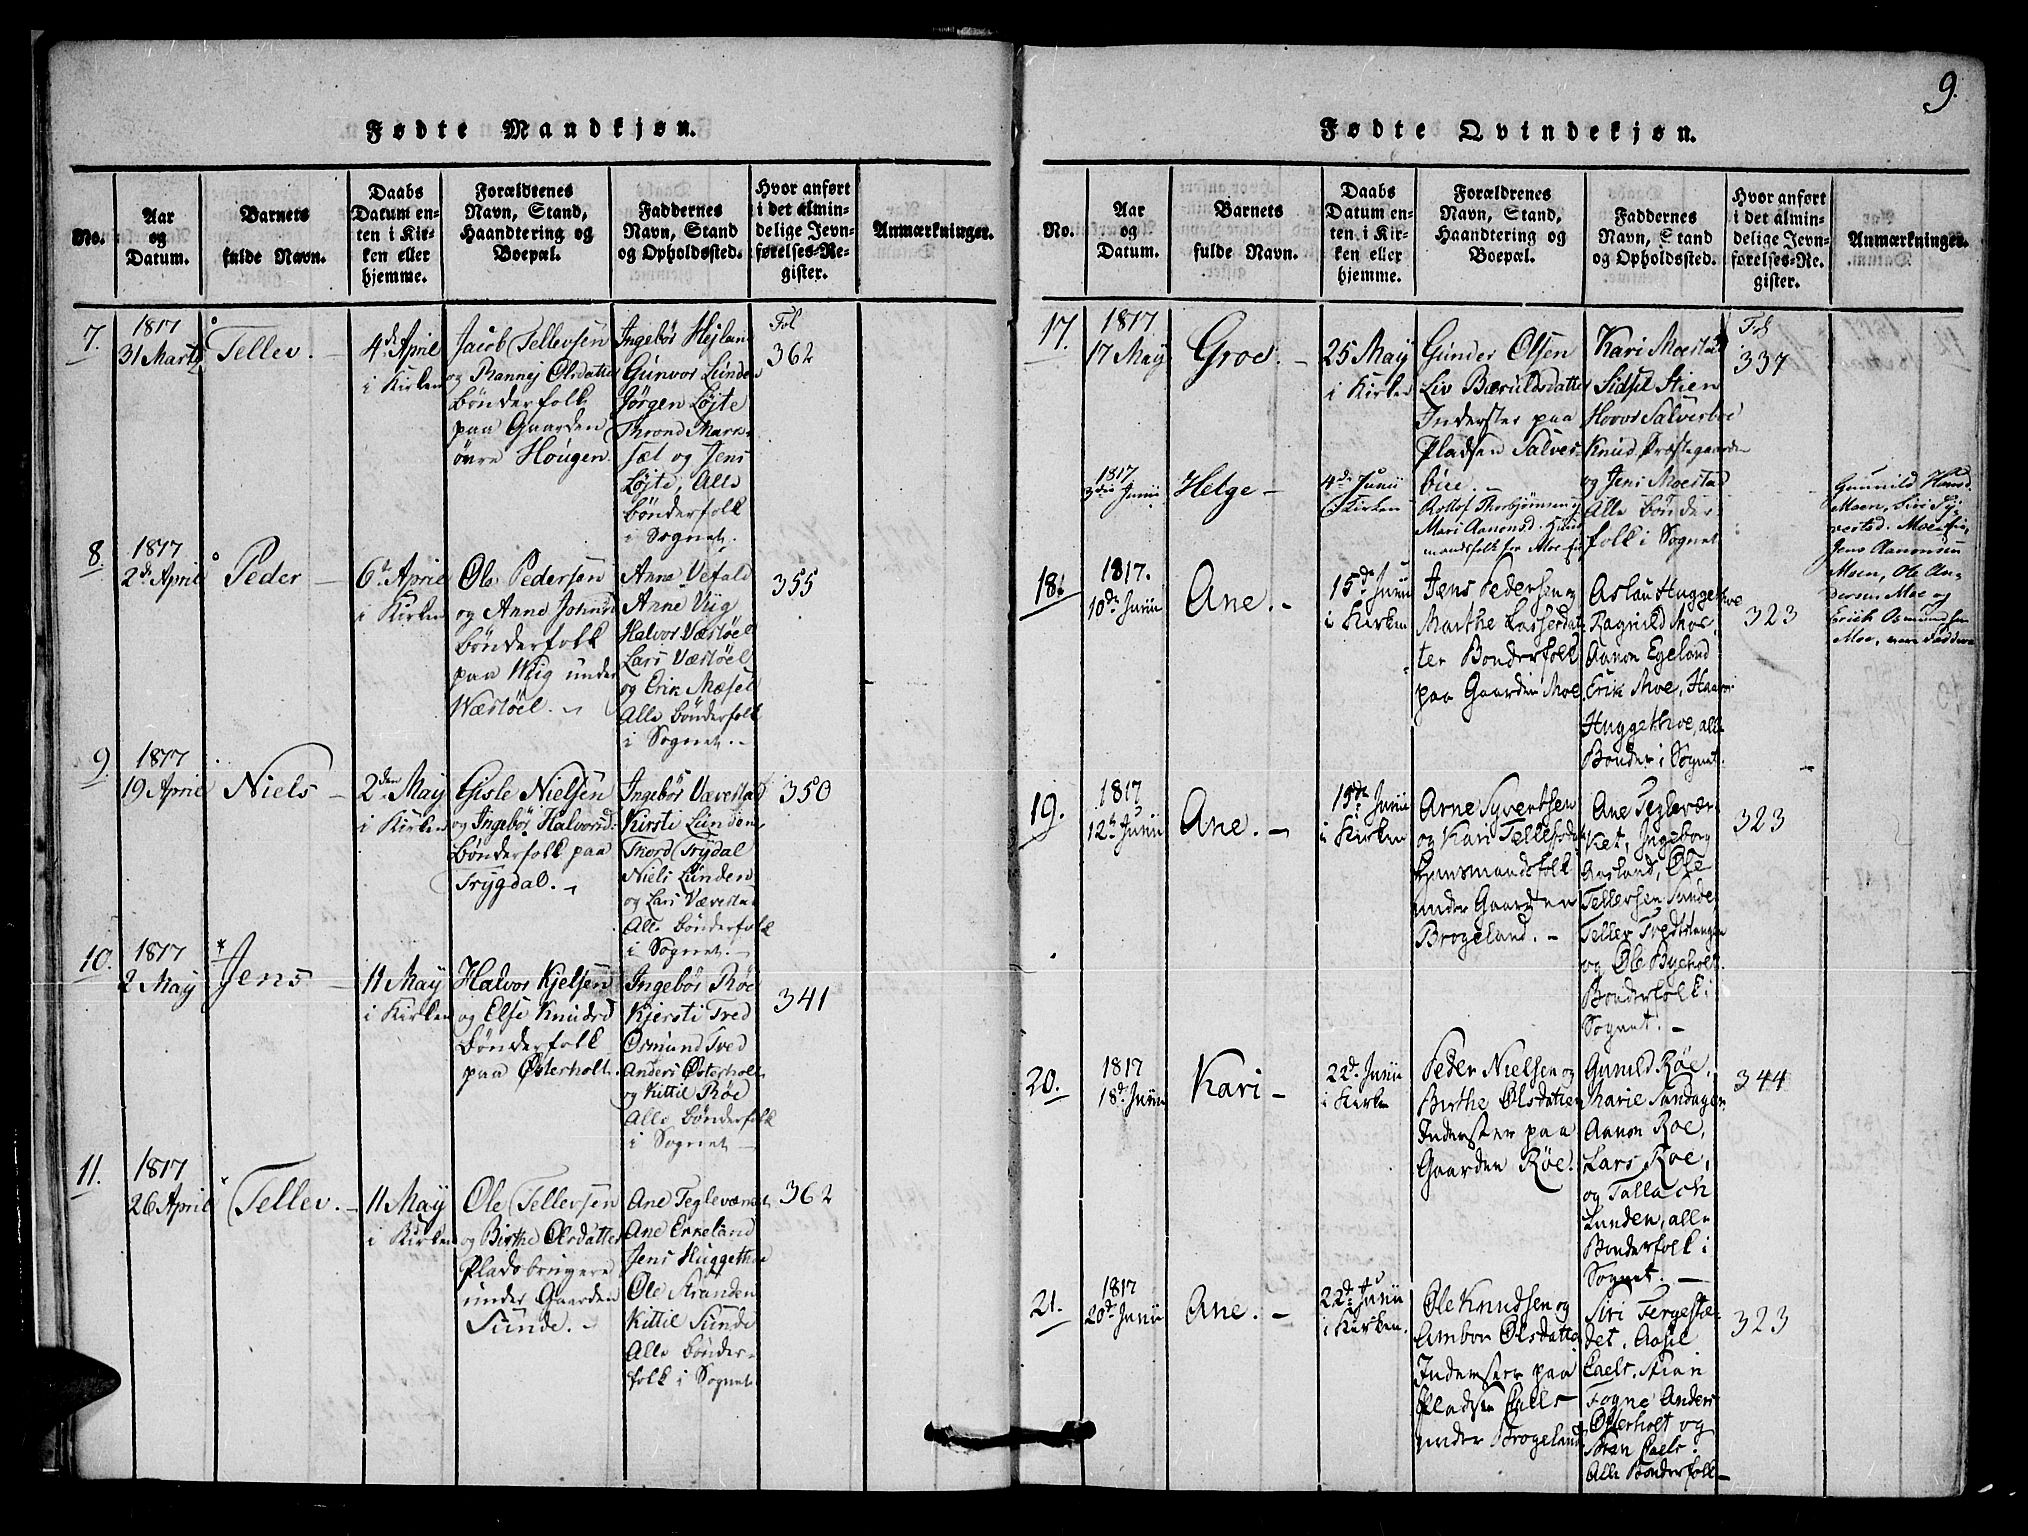 9.
Fødte Mandkjøn.
No.
Aar
og
Datum.
Barnets
fulde Navn.
Daabs
Datum en-
ten i Kir-
ken eller
hjemme.
Forældrenes
Navn, Stand,
Haandtering og
Boepæl.
Faddernes
Navn, Stand
og Opholdssted.
Hvor anført
i det almin-
delige Jevn-
førelses-Re-
gister.
Anmærkninger.
7.
1817
31 Marts
Tellev. –
4de April
i Kirken
Jacob Tellevsen
og Rannej Olsdatter
bønderfolk
paa Gaarden
øvre Hougen
Ingebør Hejlan
Gunvor Lunden
Jørgen Løjte
Thrond Mark-
sæt og Jens
Løjte, Alle
bønderfolk
i Sognet.
Fol
362
8.
1817
2de April
Peder –
6te April
i Kirken
Ole Pedersen
og Anne Johns
bønderfolk
paa Wiig under
Wæstøel. –
Anne Vefald
Anne Viig
Halvor Væstøel
Lars Væstøel
og Erik Mæsel
Alle bønderfolk
i Sognet. –
355
9.
1817
19 April
Niels –
2den May
i Kirken
Gisle Nielsen
og Ingebør Halvorsd:
bønderfolk paa
Trygdal. –
Ingebør Vævestad
Kirsti Lunden
Thord Trydal
Niels Lunden
og Lars Vævestad
Alle bønderfolk
i Sognet. –
350
10.
1817
2 May
* Jens –
11 May
i Kirken
Halvor Kjelsen
og Else Knudsd
bønderfolk
paa Østerholt.
Ingebør Røe
Kjersti Tved
Osmund Tved
Anders Østerholt
og Kittil Røe
Alle bønderfolk
i Sognet –
341
11.
1817
26 April
Tellev. –
11 May
i Kirken
Ole Tellevsen
og Birthe Olsdatter
Pladsbrugere
under Gaarden
Sunde. –
Ane Tegleværket
Ane Erkeland
Jens Huggethoe
Ole Stranden
Kittil Sunde
Alle bønder-
folk i Sognet
362
Fødte Qvindekjøn.
No.
Aar
og
Datum.
Barnets
fulde Navn.
Daabs
Datum en-
ten i Kir-
ken eller
hjemme.
Forældrenes
Navn, Stand,
Haandtering og
Boepæl.
Faddernes
Navn, Stand
og Opholdssted.
Hvor anført
i det almin-
delige Jevn-
førelses-Re-
gister.
Anmærkninger.
17.
1817
17 May
Groe. –
25 May
i Kirken
Gunder Olsen
Liv Bæruldsdatter
Inderster paa
Pladsen Salves-
bøe. –
Kari Moestad
Sidsel Stien
Hovor Salverboe
Knud Præstegaarden
og Jens Moestad
Alle bønder
folk i Sognet
Fol
337
1817
3die Junii
Helge –
4de Junii
i Kirken
Rollof Thorbjørnsen og
Mari Aanensd. Huus
mandsfolk for Moe Eie
Gunnild Hansd
Moen, Siri Sy-
vertsd. Moen,
Jens Aanonsen
Moen, Ole An-
dersen, Moe og
Erich Osmundsen
Moe, som Faddere
18.
1817.
10de Junii
Ane. –
15de Junii
i Kirken
Jens Pedersen og
Marthe Lassesdat-
ter Bonderfolk
paa Gaarden Moe
Aslau Huggethoe
Ragnild Moe,
Aanon Egeland
Erik Moe, Haavor
Huggethoe, alle
Bonder i Sognet.
323
19.
1817
12te Junii
Ane. –
15de Junii
i Kirken
Arne Syvertsen
og Kari Tellefsdat
Huusmandsfolk
under Gaarden
Brogeland. –
Ane Teglevær-
ket, Ingeborg
Aasland, Ole
Tellevsen Sunde,
Tellev Tvedtstangen
og Ole Bygholt
Bonderfolk i
Sognet. –
323
20.
1817
18de Junii
Kari –
22de Junii
i Kirken
Peder Nielsen og
Birthe Olsdatter
Inderster paa
Gaarden Røe.
Gunild Røe,
Marie Sandager
Aanon Roe,
Lars Roe,
og Tallach
Lunden, alle
Bonderfolk i
Sognet. –
344
21.
1817
20de Junii
Ane. –
22de Junii
i Kirken.
Ole Knudsen og
Ambor Olsdatter
Inderster paa
Pladsen Caels
under Brogeland
Siri Fergeste-
det, Aasil
Caels, Stian
Fogne Anders
Østerholt og
Bren Caels.
Alle Bonderfolk –
323